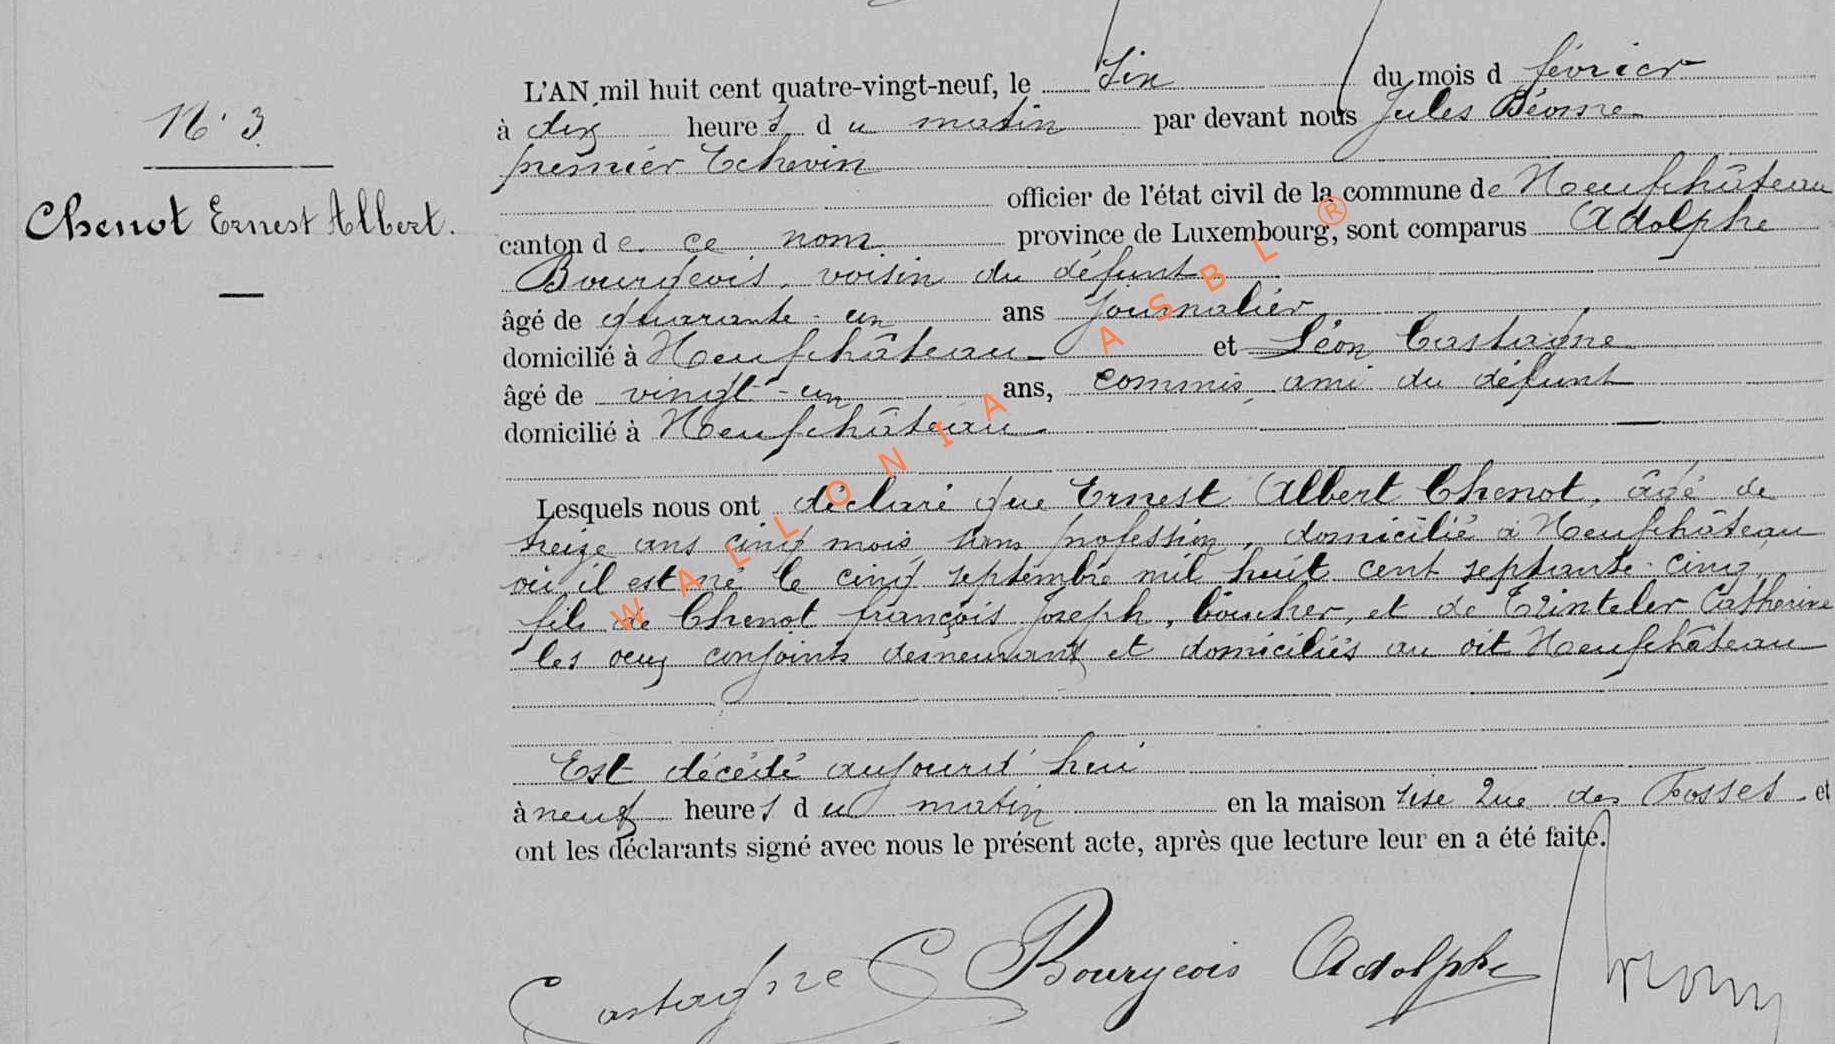 N° 3
Chenot Ernest Albert.
L'AN mil huit cent quatre-vingt-neuf, le six du mois d février
à dix heures du matin par devant nous Jules
premier Echevin
officier de l'état civil de la commune de Neufchâteau
canton de ce nom province de Luxembourg, sont comparus Adolphe
Bourgeois, voisin du défunt
âgé de quarante-un ans journalier
domicilié à Neufchâteau et Léon Castagne
âgé de vingt-un ans, commis, ami du défunt
domicilié à Neufchâteau
Lesquels nous ont déclaré que Ernest Albert Chenot, âgé de
treize ans cinq mois, sans profession, domicilié à Neufchâteau
où il est né le cinq septembre mil huit cent septante-cinq,
fils de Chenot françois Joseph, boucher, et de Catherine
les deux conjoints demeurant et domiciliés au dit Neufchâteau
Est décédé aujourd'hui
à neuf heures du matin en la maison sise Rue des Fosses et
ont les déclarants signé avec nous le présent acte, après que lecture leur en a été faite.
Castagne Bourgeois Adolphe
WALLONIA ASBL ®